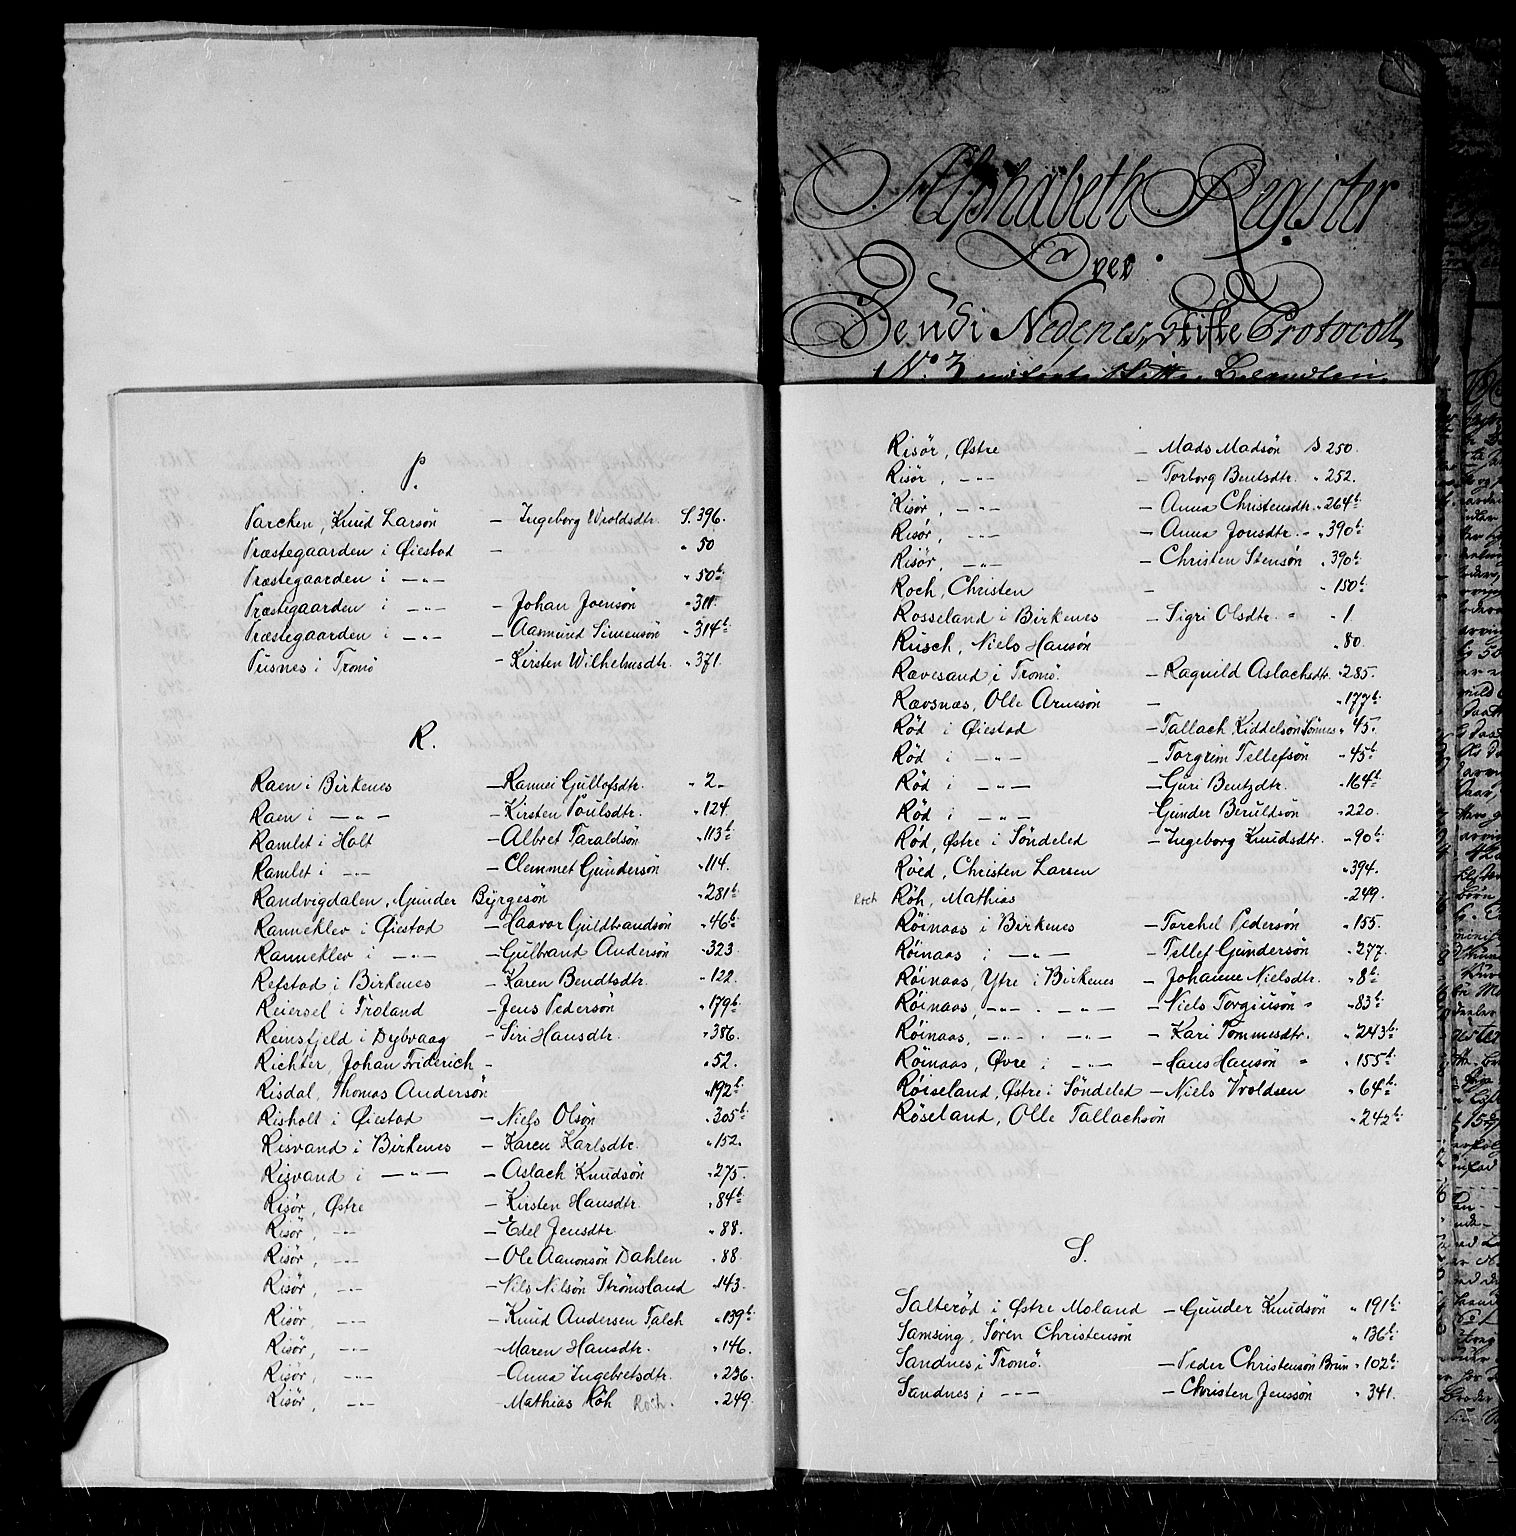 P.
Parchen, Knud Larsön — Ingeborg Wroldsdtr. S. 396.
Præstegaarden i Øiestad — " 50
Præstegaarden i — " — " 50b:
Præstegaarden i — " — — Johan Joensön " 311.
Præstegaarden i — " — — Aasmund Simensön " 314b:
Pusnes i Tromö — Kirsten Wilhelmsdtr. " 371.
R.
Raen i Birkenes — Rannei Gullofsdtr. " 2.
Raen i — " — — Kirsten Poulsdtr. " 124.
Ramlet i Holt — Albret Taraldsön " 113b:
Ramlet i — " — — Clemmet Gundersön " 114.
Randvigdalen, Gunder Byrgesön " 281b:
Rannekler i Øiestad — Haavor Guldbrandsön " 46b:
Rannekler i — " — — Gulbrand Andersön " 323.
Refstad i Birkenes — Karen Bendtsdtr. " 122.
Reiersel i Froland — Jens Pedersön " 179b:
Reinsfjeld i Dybvaag — Siri Hansdtr. " 386.
Richter, Johan Friderich — " 52.
Risdal, Thomas Andersön " 192b:
Risholt i Øiestad — Niels Olsön " 305b:
Risvand i Birkenes — Karen Karlsdtr. " 152.
Risvand i — " — — Aslach Knudsön " 275.
Risör, Østre — Kirsten Hansdtr. " 84b:
Risör, — " — — Edel Jensdtr " 88.
Risör, — " — — Ole Aanonsön Dahlen " 88
Risör, — " — — Nils Nilsön Strömsland " 143.
Risör — " — — Knud Andersen Falch " 139b:
Risör, — " — — Maren Hansdtr. " 146.
Risör — " — — Anna Ingebretsdtr. " 236.
Risör, — " — — Mathias Röh Roch. " 249.
Alphabeth Register
Over
Dend i Nedenes, Skifte Protocoll,
No. 3
Risör, Østre — Mads Madsön S 250.
Risör, — " — — Torborg Bentsdtr. " 252.
Risör, — " — — Anna Christensdtr. " 264b:
Risör, — " — — Anna Jonsdtr. " 390b:
Risör, — " — — Christen Stensön " 390b:
Roch, Christen — " 150b:
Rosseland i Birkenes — Sigri Olsdtr. " " 1
Rusch, Niels Hansön " 80.
Rævesand i Tromö. — Ragnild Aslachsdtr. " 285.
Rævsnæs, Olle Arnesön — " 177b:
Röd i Øiestad — Tallach Kiddelsön Sönnes " 45.
Röd i — " — — Torgrim Tellefsön " 45b
Röd i — " — — Guri Bentzdtr. " 164b
Röd i — " — Gunder Beruldsön " 220.
Röd, Østre i Söndeled — Ingeborg Knudsdtr. " 90b:
Röed, Christen Larsen " 394.
Roch Röh, Mathias " 249.
Röinaas i Birkenes — Torchel Pedersön " 155.
Röinaas i — " — — Tellef Gundersön " 277.
Röinaas, Ytre i Birkenes — Johanne Nielsdtr. " 8b:
Röinaas, — " — . — " — — Niels Torgiusön " " 83b:
Röinaas, — " — . — " — — Kari Tommesdtr. " 243b:
Röinaas, Øvre i — " — — Hans Hansön " " 155b:
Röiseland, Østre i Söndeled — Niels Vroldsen " 64b:
Röseland, Olle Tallachsön " 242b:
S.
Salteröd i Østre Moland — Gunder Knudsön " 191b:
Samsing, Sören Christensön " 136b:
Sandnes i Tromö. — Peder Christensön Brun " 102b:
Sandnes i — " — — Christen Jenssön " 341.